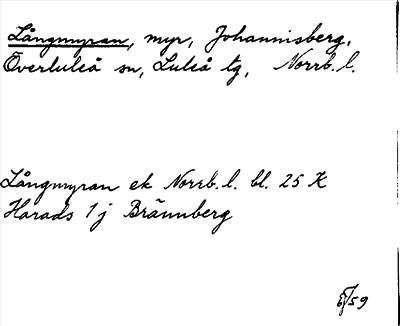 Långmyran, myr, Johannisberg,
Överluleå sn, Luleå tg, Norrb. l.
Långmyran ek Norrb. l. bl. 25 K
Harads 1 j Brännberg
/59